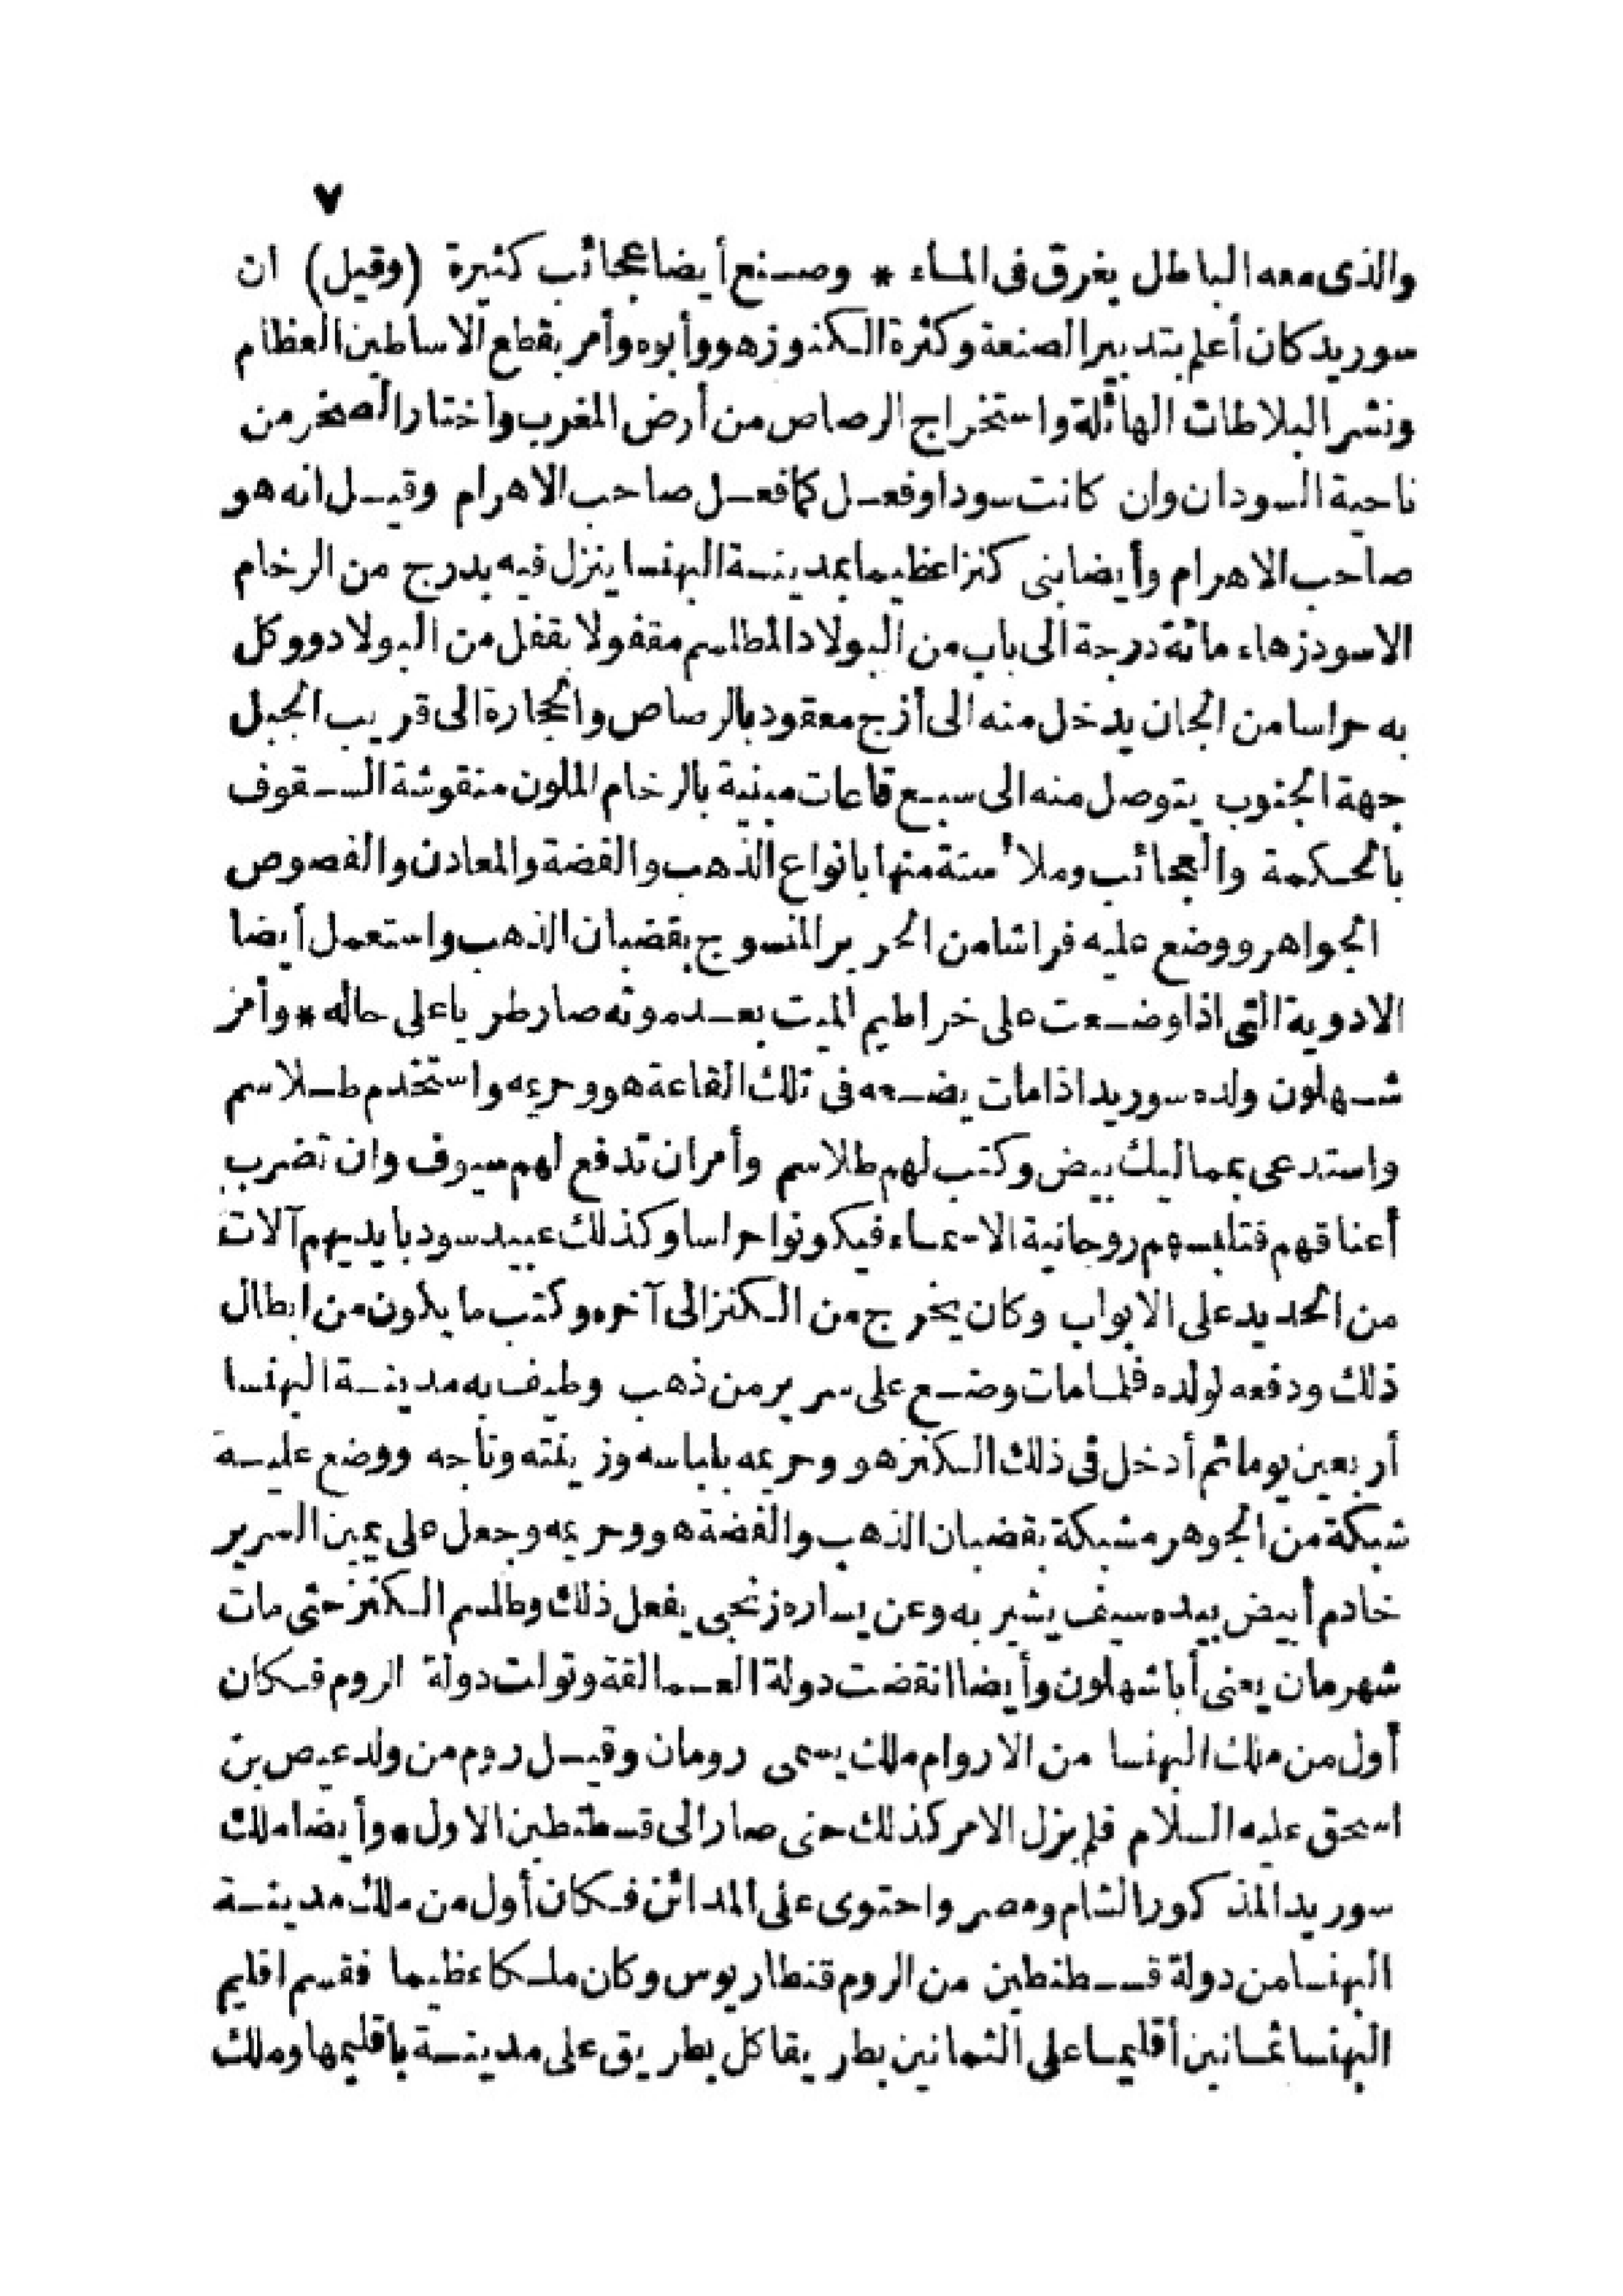 ٧
والذى معه الباطل يغرق فى الماء * وصنع أيضا عجائب كثيرة (وقيل) ان
سوريد كان أعلم بتدبير الصنعة وكثرة الكنوز هو وأبوه وأمر بقطع الاساطين العظام
ونشر البلاطات الهائلة واستخراج الرصاص من أرض المغرب واختار الصخر من
ناحية السودان وان كانت سودا وفعل كما فعل صاحب الاهرام وقيل انه هو
صاحب الاهرام وأيضا بنى كنزا عظيما بمدينة البهنسا ينزل فيه بدرج من الرخام
الاسود زهاء مائة درجة الى باب من البولاد المطلسم مقفولا بقفل من البولاد ووكل
به حراسا من الجان يدخل منه الى أزج معقود بالرصاص والحجارة الى قريب الجبل
جهة الجنوب يتوصل منه الى سبع قاعات مبنية بالرخام الملون منقوشة السقوف
بالحكمة والعجائب وملأ ستة منها بانواع الذهب والفضة والمعادن والفصوص
الجواهر ووضع عليه فراشا من الحرير المنسوج بقضبان الذهب واستعمل أيضا
الادوية التى اذا وضعت على خراطيم الميت بعد موته صار طريا على حاله * وأمر
شهلون ولده سوريد اذا مات يضعه فى تلك القاعة هو وحريمه واستخدم طلاسم
واستدعى بمماليك بيض وكتب لهم طلاسم وأمر ان تدفع لهم سيوف وان تضرب
أعناقهم فتلبسهم روحانية الاسماء فيكونوا حراسا وكذلك عبيد سود بايديهم آلات
من الحديد على الابواب وكان يخرج من الكنز الى آخره وكتب ما يكون من ابطال
ذلك ودفعه لولده فلما مات وضع على سرير من ذهب وطيف به مدينة البهنسا
أربعين يوما ثم أدخل فى ذلك الكنز هو وحريمه بلباسه وزينته وتاجه ووضع عليه
شبكة من الجوهر مشبكة بقضبان الذهب والفضة هو وحريمه وجعل على يمين السرير
خادم أبيض بيده سيف يشير به وعن يساره زنجى يفعل ذلك وطلسم الكنز حتى مات
شهرمان يعنى أبا شهلون وأيضا انقضت دولة العمالقة وتولت دولة الروم فكان
أول من ملك البهنسا من الاروام ملك يسمى رومان وقيل روم من ولد عيص بن
اسحق عليه السلام فلم يزل الامر كذلك حتى صار الى قسطنطين الاول * وأيضا ملك
سوريد المذكور الشام ومصر واحتوى على المدائن فكان أول من ملك مدينة
البهنسا من دولة قسطنطين من الروم قنطاريوس وكان ملكا عظيما فقسم اقليم
البهنسا ثمانين أقليما على الثمانين بطريقا كل بطريق على مدينة باقليمها وملك